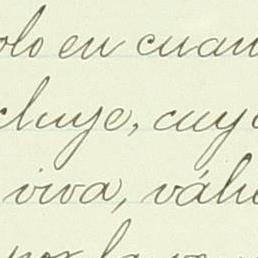 olo en cuan
cluye, cuya
viva, váli
por la